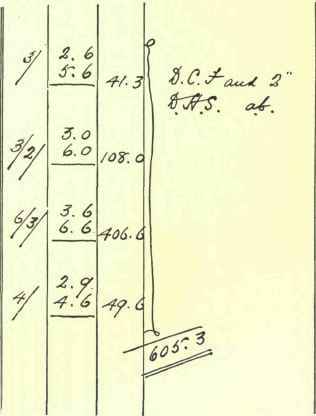 3/ 2.6
5.6 41.3 D.C.F and 2"
D.A.S. ab.
3/2/ 3.0
6.0 108.0
6/3/ 3.6
6.6 406.6
4/ 2.9
4.6 49.6
605.3